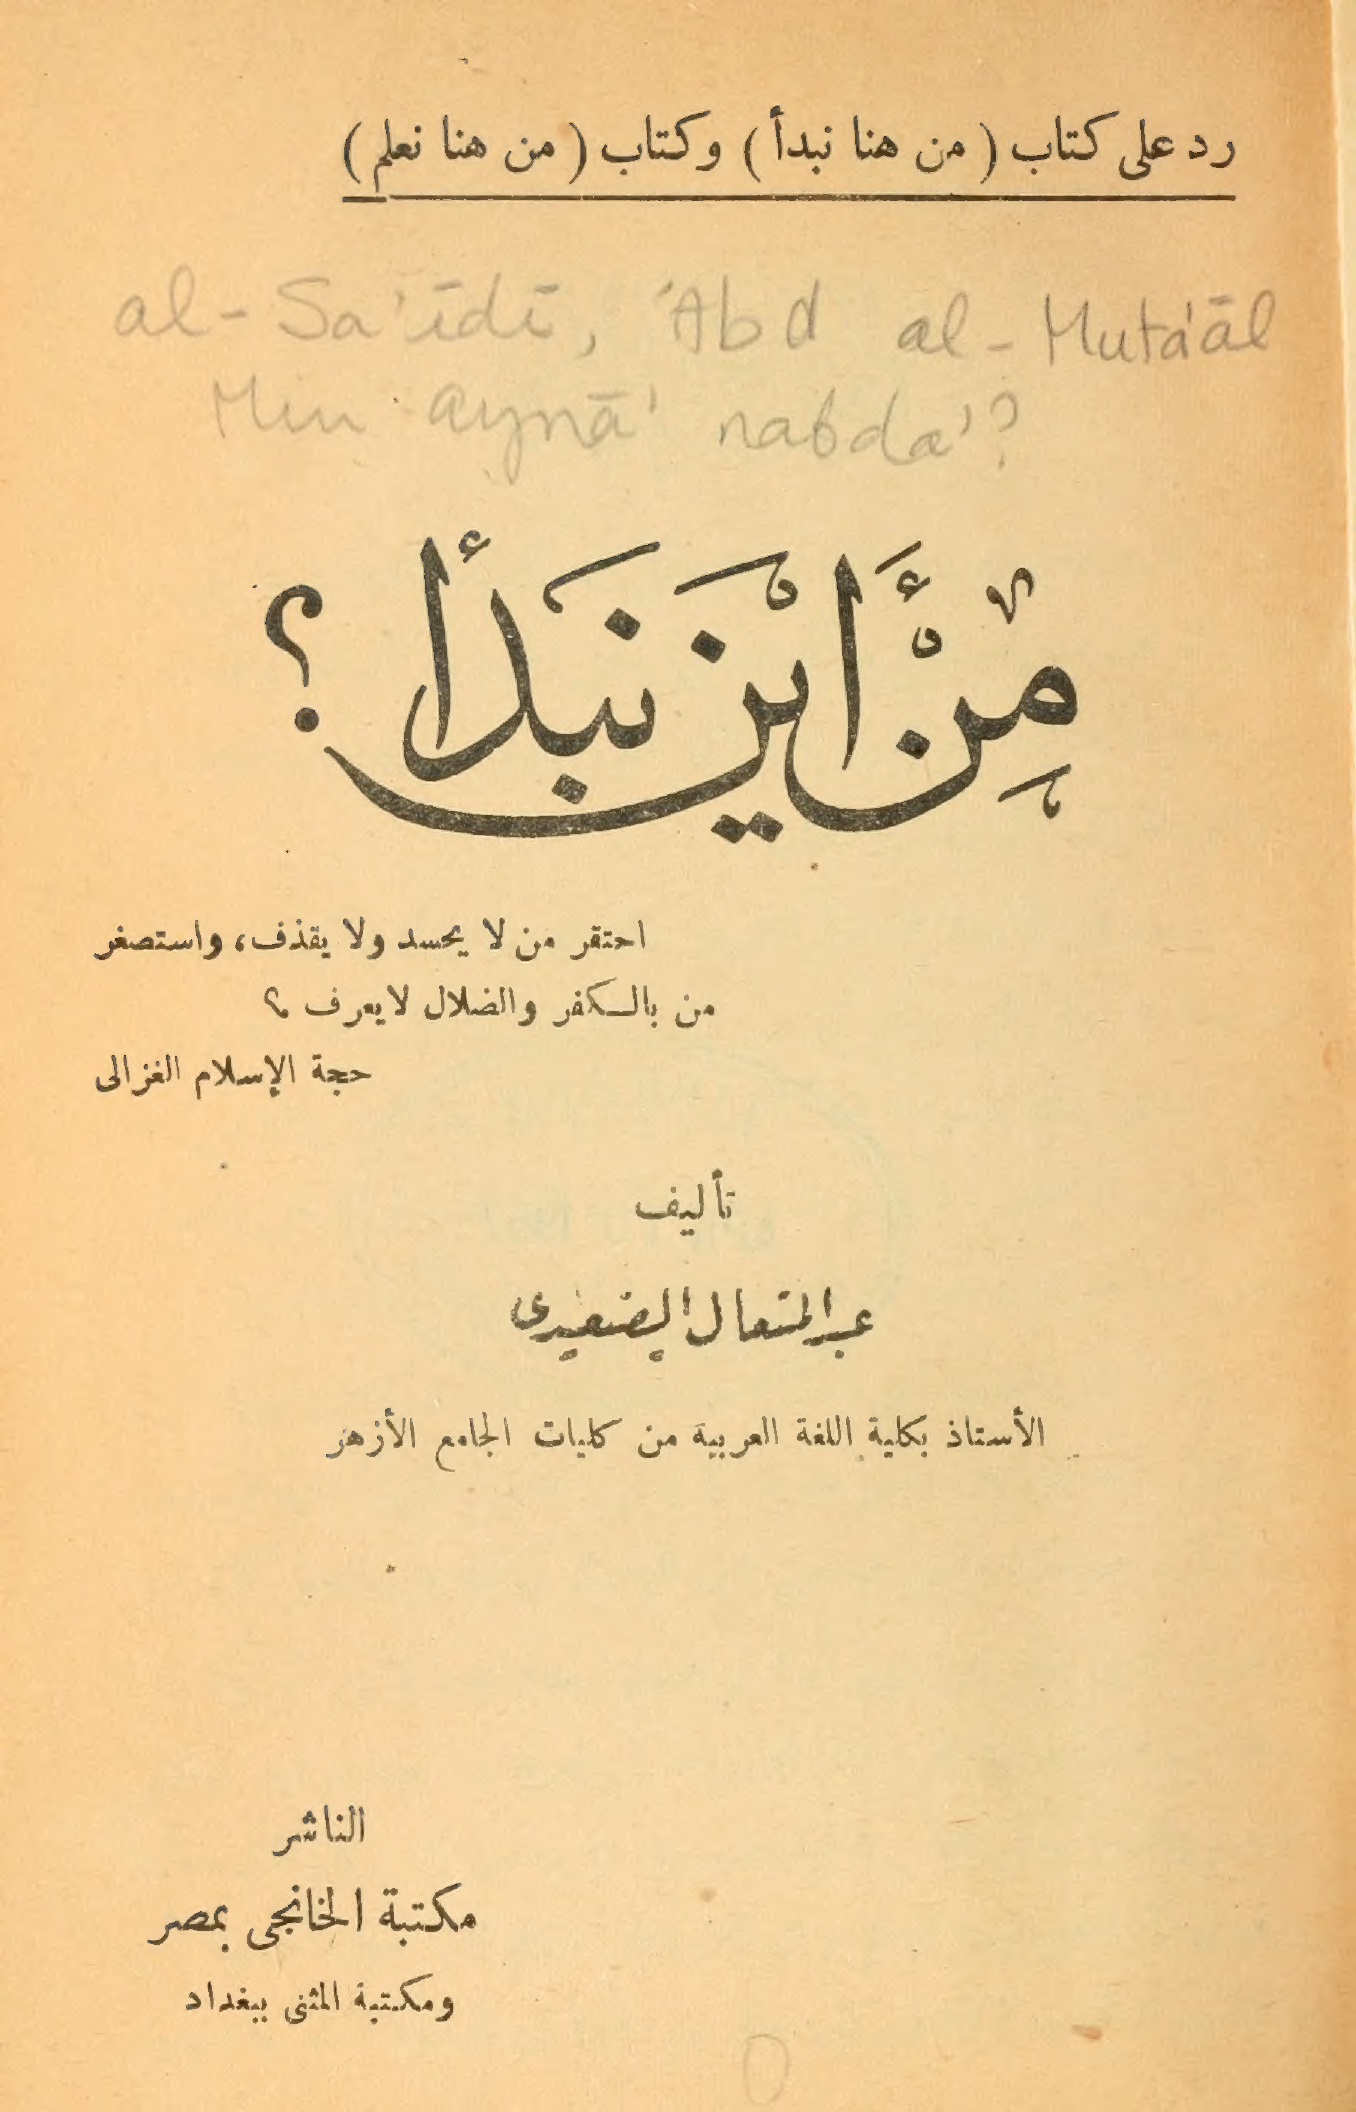 رد على كتاب ( من هنا نبدأ ) وكتاب ( من هنا نعلم )
al-Sa'īdī, 'Abd al-Muta'āl
Min aynā' nabda'?
مِنْ أَيْنَ نَبدأ ؟
احتقر من لا يحسد ولا يقذف، واستصغر
من بالكفر والضلال لا يعرف ؟
حجة الإسلام الغزالى
تأليف
عبد المتعال الصعيدى
الأستاذ بكلية اللغة العربية من كليات الجامع الأزهر
الناشر
مكتبة الخانجى بمصر
ومكتبة المثنى ببغداد